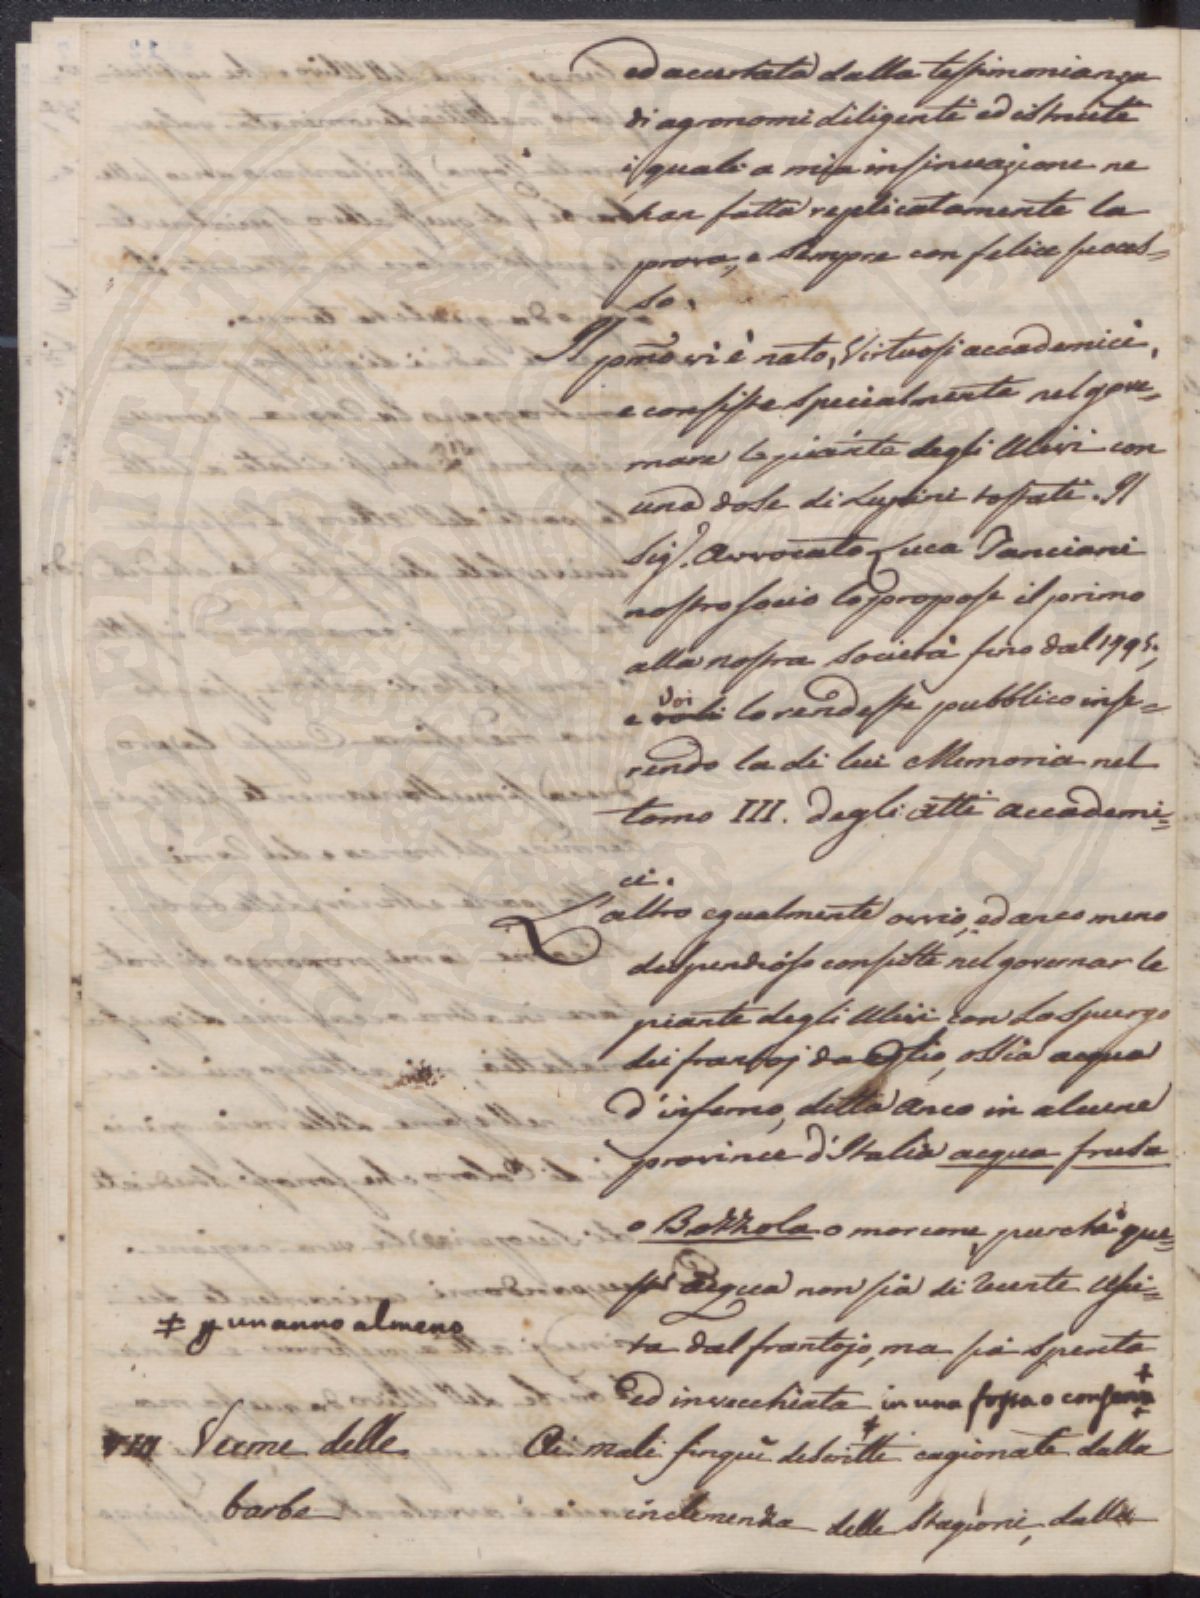 ed accertata dalla testimonianza
di agronomi diligenti ed istruiti
i quali a mia insinuazione ne
han fatta replicatamente la
prova, e sempre con felice succes=
so.
Il p.mo vi è nato, Virtuosi accademici,
e consiste specialmente nel gover=
nare le piante degli Ulivi con
una dose di Lupini tostati. Il
Sig.r Avvocato Luca Tanciani
nostro socio lo propose il primo
alla nostra società fino dal 1795;
e voi lo rendeste pubblico inse=
rendo la di lui Memoria nel
tomo III. degli atti accademi=
ci.
L'altro egualmente ovvio, ed anco meno
dispendioso consiste nel governar le
piante degli Ulivi con Lo spurgo
dei frantoj da oglio, ossia acqua
d'inferno, detta anco in alcune
provincie d'Italia acqua fruta
o Bozzola o morcone, purchè que=
st' Acqua non sia di recente usci=
ta dal frantojo, ma sia spenta
ed invecchiata in una fossa o conserva
‡ p un anno almeno
VIII Verme delle
barbe
Ai mali finquì descritti cagionati dalla
inclemenza delle Stagioni, dalla